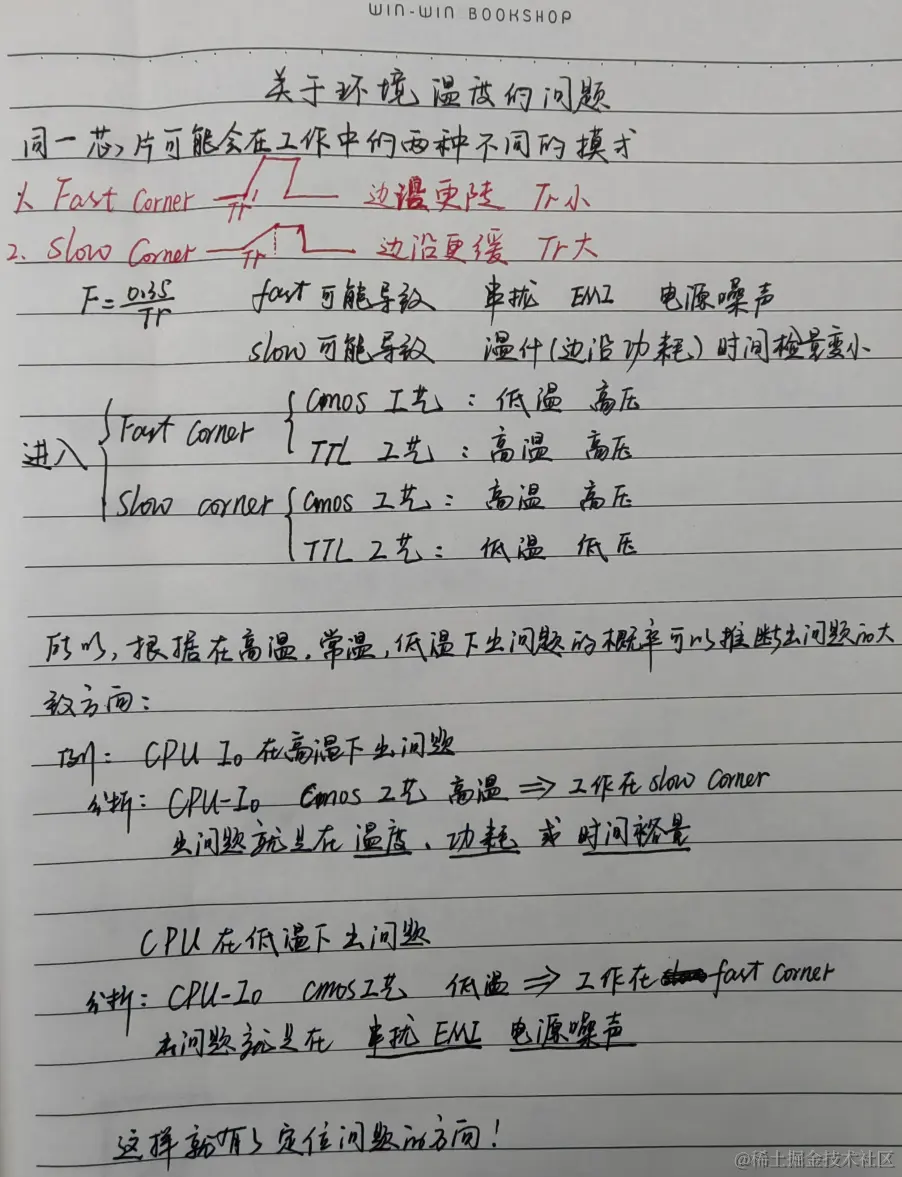 WIN-WIN BOOKSHOP
关于环境温度的问题
同一芯片可能会在工作中的两种不同的模式
1. Fast Corner Tr 边沿更陡 Tr小
2. Slow Corner Tr 边沿更缓 Tr大
F=0.35/Tr fast可能导致 串扰 EMI 电源噪声
slow可能导致 温升(边沿功耗)时间检量变小
进入 Fast Corner Cmos 工艺：低温 高压
TTL 工艺：高温 高压
Slow corner Cmos 工艺：高温 高压
TTL 工艺：低温 低压
所以,根据在高温.常温,低温下出问题的概率可以推断出问题的大
致方向：
例：CPU Io 在高温下出问题
分析：CPU-Io Cmos 工艺 高温 ⇒ 工作在slow corner
出问题就是在 温度、功耗 或 时间裕量
CPU在低温下出问题
分析：CPU-Io cmos工艺 低温 ⇒ 工作在 fast corner
出问题就是在 串扰 EMI 电源噪声
这样就有了定位问题的方向！
@稀土掘金技术社区